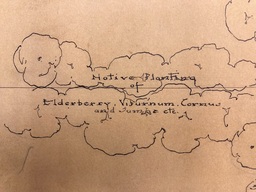 Native Planting
of
Elderberry, Viburnum, Cornus
and Sumac etc.